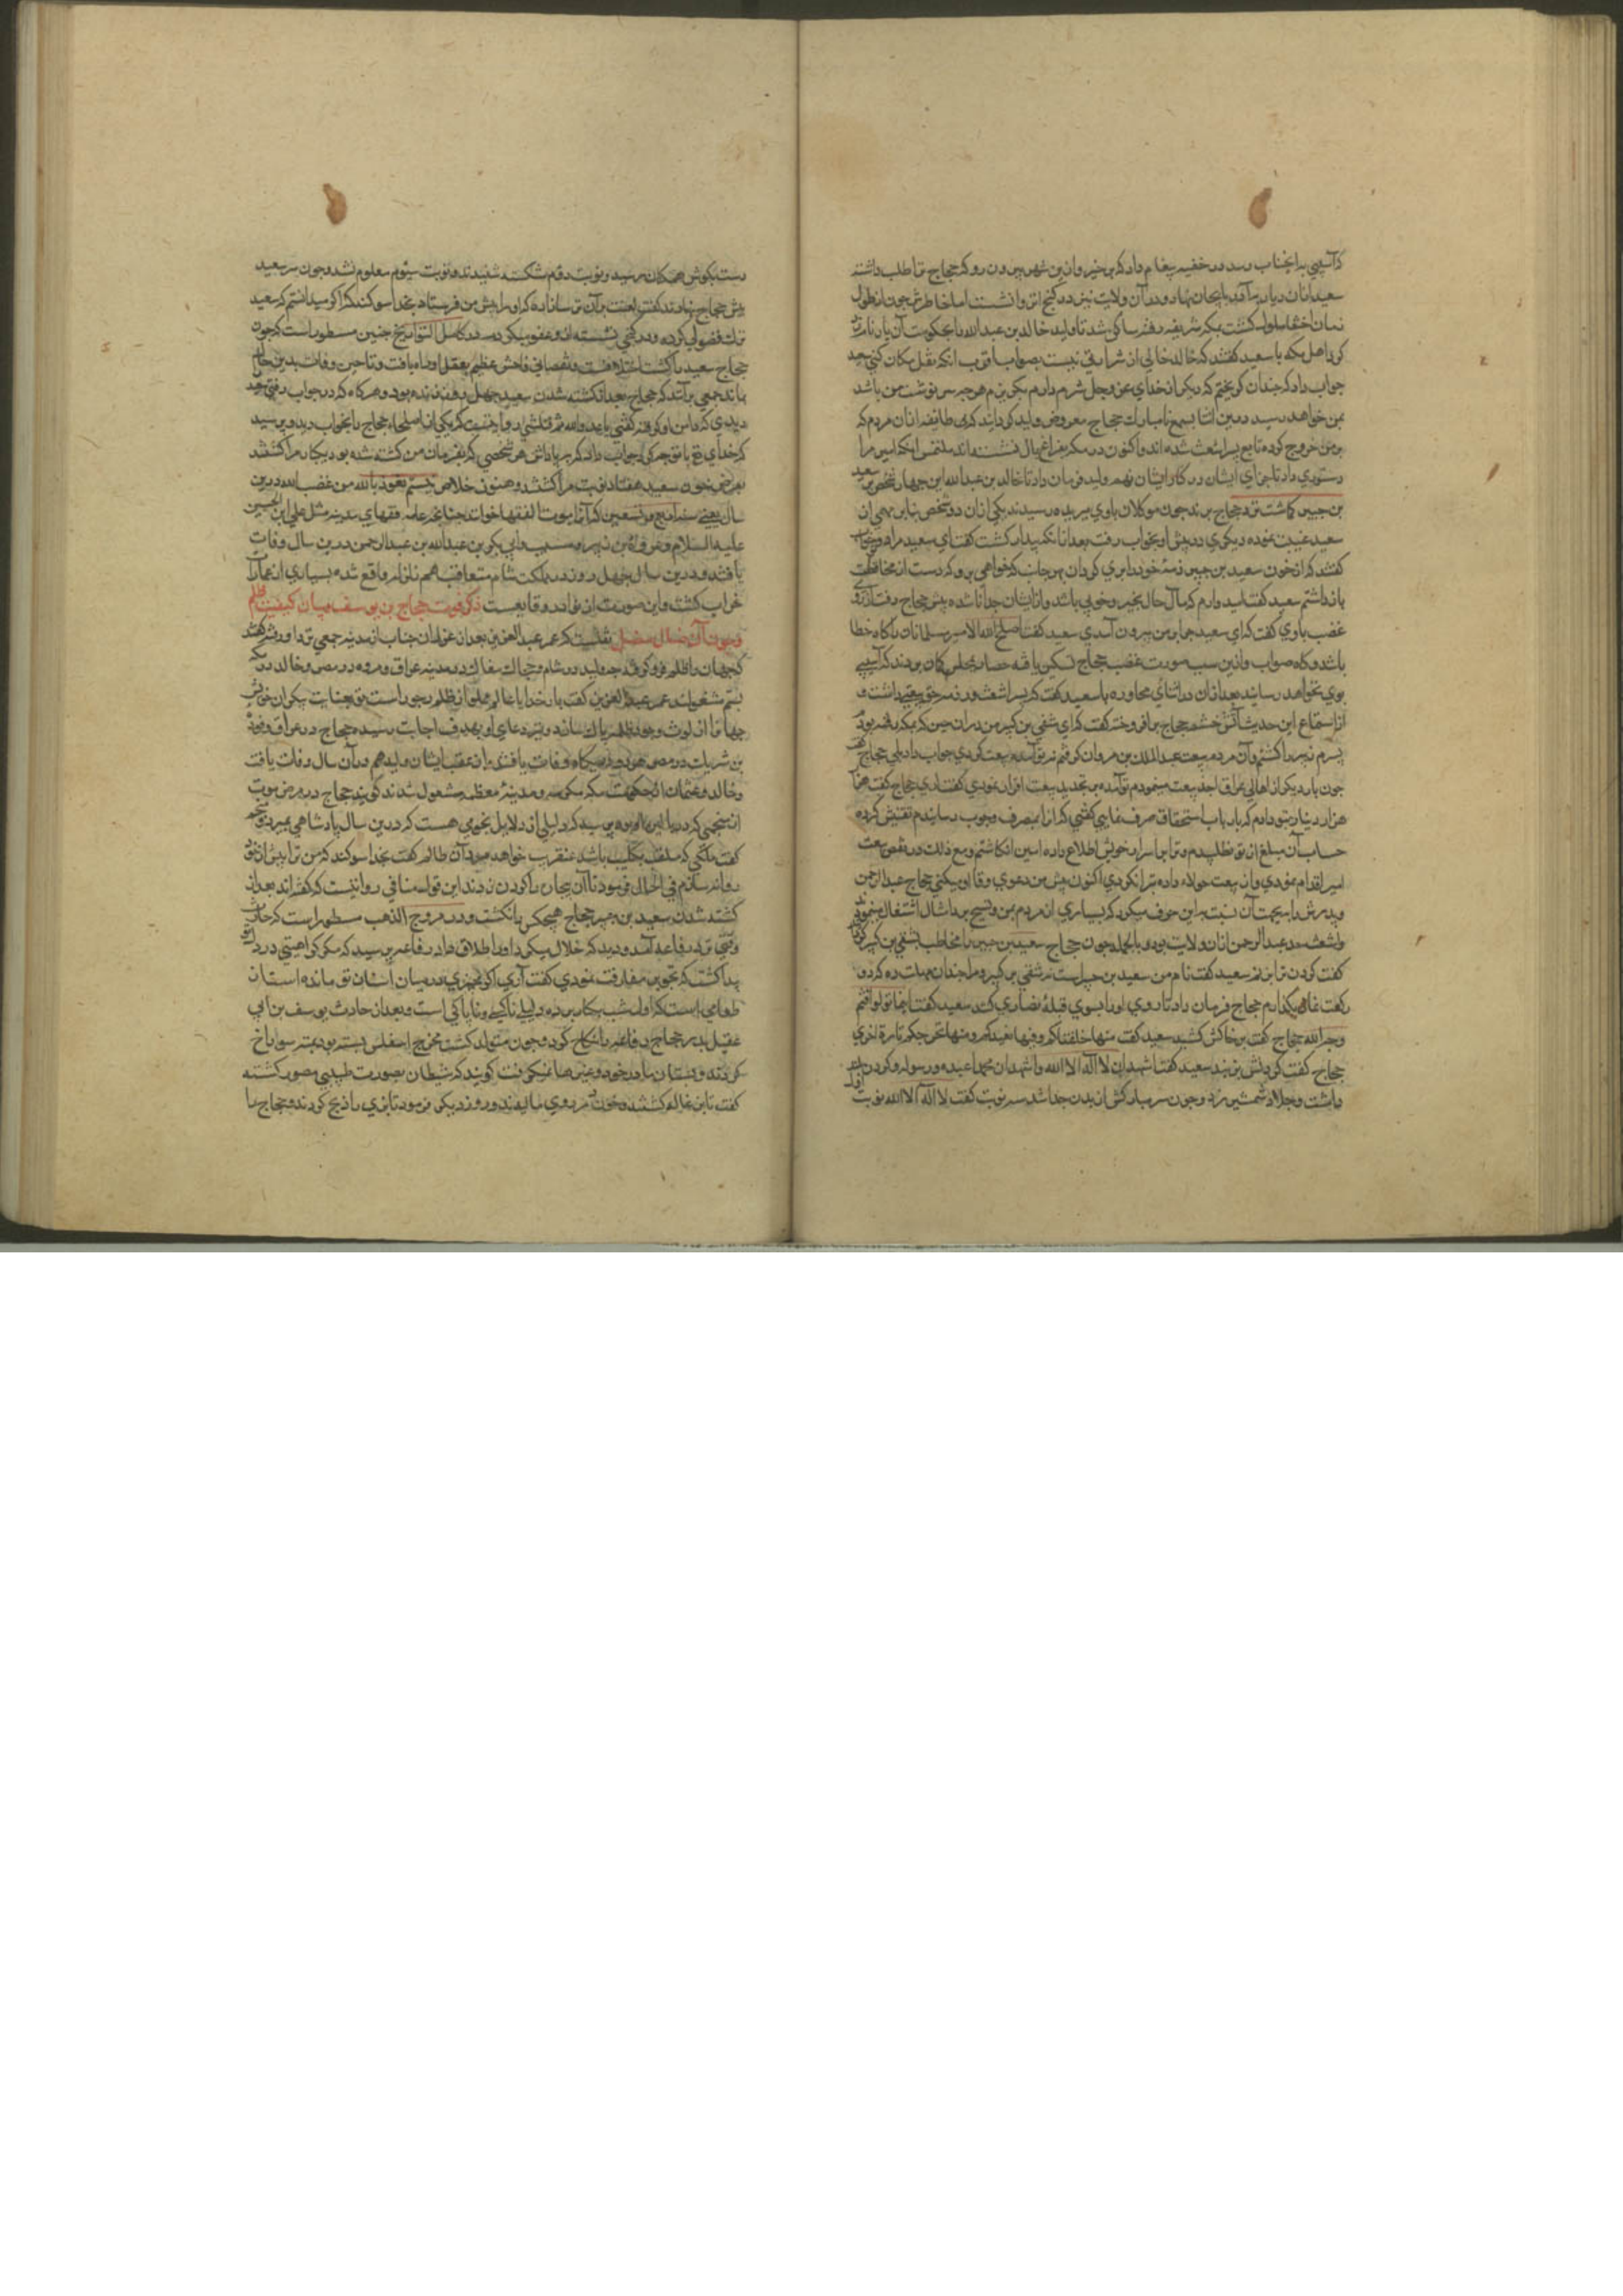 که آسیبی بدانجناب رسد در خفیه پیغام داد که برخیز و ازین شهر بیرون رو که حجاج ترا طلب داشته
سعید ازان دیار برآمد باذربیجان نهاد و در آن ولایت نیز در کنج انزوا نشست اما خاطرش چون از طول
زمان اختفا ملول گشت بمکه شریفه رفته ساکن شد تا ولید خالد بن عبدالله را بحکومت آن دیار نامزد
کرد اهل مکه با سعید گفتند که خالد خالی از شرارتی نیست بصواب اقرب آنکه نقل مکان کنی سعید
جواب داد که چندان گریختم که دیگر از خدای عز وجل شرم دارم که بگریزم هرچه سرنوشت من باشد
بمن خواهد رسید درین اثنا بسمع نامبارک حجاج معروض ولید گردانید که طایفه ازان مردم که
بر من خروج کرده تابع پسر اشعث شده اند و اکنون در مکه بفراغ بال نشسته اند ملتمس آنکه امیر مرا
دستوری داد تا جزای ایشان در کنار ایشان نهم ولید فرمان داد تا خالد بن عبدالله این چهار شخص سعید
بن جبیر گماشت نزد حجاج برند چون موکلان باوی بربذه رسیدند یکی ازان دو شخص بنابر مهمی از
سعید غیبت نموده دیگری در پیش او بخواب رفت بعد ازانکه بیدار گشت گفت ای سعید مرا در خواب
گفتند که از خون سعید بن جبیر ذمه خود را بری گردان بهر جانب که خواهی برو که دست از محافظت
بازداشتم سعید گفت امید دارم که مآل حال بخیر و خوبی باشد و از ایشان جدا ناشده پیش حجاج رفت از روی
غضب باوی گفت که ای سعید چرا بر من بیرون آمدی سعید گفت اصلح الله الامیر مسلمانان را گاه خطا
باشد و گاه صواب و ازین سبب صورت غضب حجاج تسکین یافته حضار مجلس گمان بردند که آسیبی
بوی نخواهد رسانید بعد ازان در اثنای محاوره با سعید گفت که پسر اشعث در ذمه حق بیعتی داشت و
از استماع این حدیث آتش خشم حجاج برافروخته گفت که ای شقی بن کسیر من دران حین که بمکه رفته بودم
پسر زبیر را کشتم و آن مردم بیعت عبدالملک بن مروان گرفتم نه تو آمده بیعت کردی جواب داد بلی حجاج گفت
چون بار دیگر از اهالی عراق اخذ بیعت مینمودم تو آمده بر تجدید بیعت اقرار نمودی گفت آری حجاج گفت نه من
هزار دینار بتو دادم که بارباب استحقاق صرف نمایی گفتی که از ان بمصرف وجوب رسانیدم تفتیش کرده
حساب آن مبلغ از تو نطلبیدم و ترا بر اسرار خویش اطلاع داده امین انگاشتم و مع ذلک در نقض بیعت
امیر اقدام نمودی و از بیعت جولاه زاده تبرا نکردی اکنون پیش من دعوی وفا میکنی حجاج عبدالرحمن
و پدرش را بجهت آن نسبت باین حرف میکرد که بسیاری از مردم یمن و نسیج بردا شال اشتغال مینمودند
و اشعث جد عبدالرحمن ازان ولایت بود بالجمله چون حجاج سعید بن جبیر را مخاطب بشقی بن کسیر کرد
گفت گردن ترا بزنم سعید گفت نام من سعید بن جبیر است نه شقی بن کسیر و مرا چندان مهلت ده که دو
رکعت نماز بگذارم حجاج فرمان داد تا روی او را بسوی قبله نصاری کنند سعید گفت اینما تولوا فثم
وجه الله حجاج گفت بر خاکش کشید سعید گفت منها خلقناکم و فیها نعیدکم و منها نخرجکم تارة اخری
حجاج گفت گردنش بزنید سعید گفت اشهد ان لا اله الا الله و اشهد ان محمدا عبده و رسوله و گردن
داشت و جلاد شمشیر زد و چون سر مبارکش از بدن جدا شد سه نوبت گفت لا اله الا الله نوبت اول
درست بگوش همگنان رسید و نوبت دوم شکسته شنیدند و نوبت سیوم معلوم نشد و چون سر سعید
پیش حجاج نهادند گفت لعنت بر آن ترسا زاده که او را پیش من فرستاد بخدا سوگند که اگر میدانستم که سعید
ترک فضولی کرده و در کنجی نشسته ازو عفو میکردم در کامل التواریخ چنین مسطور است که چون
حجاج سعید را کشت اختلاف و نقصانی فاحش عظیم بعقل او راه یافت و تا حین وفات بدین حال
بماند جمعی برآنند که حجاج بعد از کشته شدن سعید چهل روز زنده بود و هرگاه که در خواب رفتی سعید
دیدی که دامن او گرفته گفتی یا عدو الله لم قتلتنی روایتست که یکی از صلحا حجاج را بخواب دید و پرسید
که خدای با تو چه کرد جواب داد که بپاداش هر شخصی که بفرمان من کشته شده بود یکبار مرا کشتند
بعوض خون سعید هفتاد نوبت مرا کشتند و هنوز خلاص نیستم نعوذ بالله من غضب الله درین
سال یعنی سنه اربع و تسعین که آنرا سنة الفقها خوانند جماعتی علما و فقهای مدینه مثل علی ابن الحسین
علیه السلام و عروة بن زبیر و مسیب و ابی بکر بن عبدالله بن عبدالرحمن درین سال وفات
یافتند و درین سال چهل روز در مملکت شام متعاقب هم زلزله واقع شده بسیاری از عمارات
خراب گشت و این صورت از نوادر وقایعست ذکر فوت حجاج بن یوسف و بیان کیفیت ظلم
و جور آن ضال مضل نقلست که عمر عبدالعزیز بعد از عزل ازان جناب از مدینه جمعی نزد او در شکر گفتند
که جهان را ظلم فرو گرفته چه ولید در شام و حجاج سفاک در مدینه عراق و قره در مصر و خالد در مکه
بستم مشغولند عمر عبدالعزیز گفت بار خدایا عالم مملو از ظلم و جور است تو بعنایت بیکران خویش
جهان را از لوث وجود ظلمه پاک ساز و تیر دعای او بهدف اجابت رسیده حجاج در عراق و قره
بن شریک در مصر هر دو در یکماه وفات یافتند و از عقب ایشان ولید هم در آن سال وفات یافت
و خالد و عثمان از حکومت مکه مکرمه و مدینه معظمه معزول شدند گویند حجاج در مرض موت
از منجمی که در ملازم او بود پرسید که دلیلی از دلایل نجومی هست که درین سال پادشاهی بمیرد منجم
گفت ملکی که ملقب بکلیب باشد عنقریب خواهد مرد آن ظالم گفت بخدا سوگند که من ترا پیش از خود
روانه سازم فی الحال فرمود تا آن بیچاره را گردن زدند این قول منافی روایتیست که گفته اند بعد از
کشته شدن سعید بن جبیر حجاج هیچکس را نکشت و در مروج الذهب مسطور است که حارث
وقتی نزد فارعه آمد و دید که خلال میکرد او را طلاق داد فارعه پرسید که مگر کراهیتی در دل تو
پیدا گشت که تجویز مفارقت نمودی گفت آری اگر چیزی در میان اسنان تو مانده است از
طعامی است که اول شب بکار برده و دلیل ناپاکی است و بعد ازان حادث یوسف بن ابی
عقیل پدر حجاج فارعه را نکاح کرد و چون متولد گشت مخرج اسفلش بسته بود بمته سوراخ
کردند و پستان مادر خود و غیرها نمیگرفت گویند که شیطان بصورت طبیبی مصور گشته
گفت تا بزغاله کشتند و خون بر روی مالیدند و روز دیگر فرمود تا بزی را ذبح کردند و حجاج را